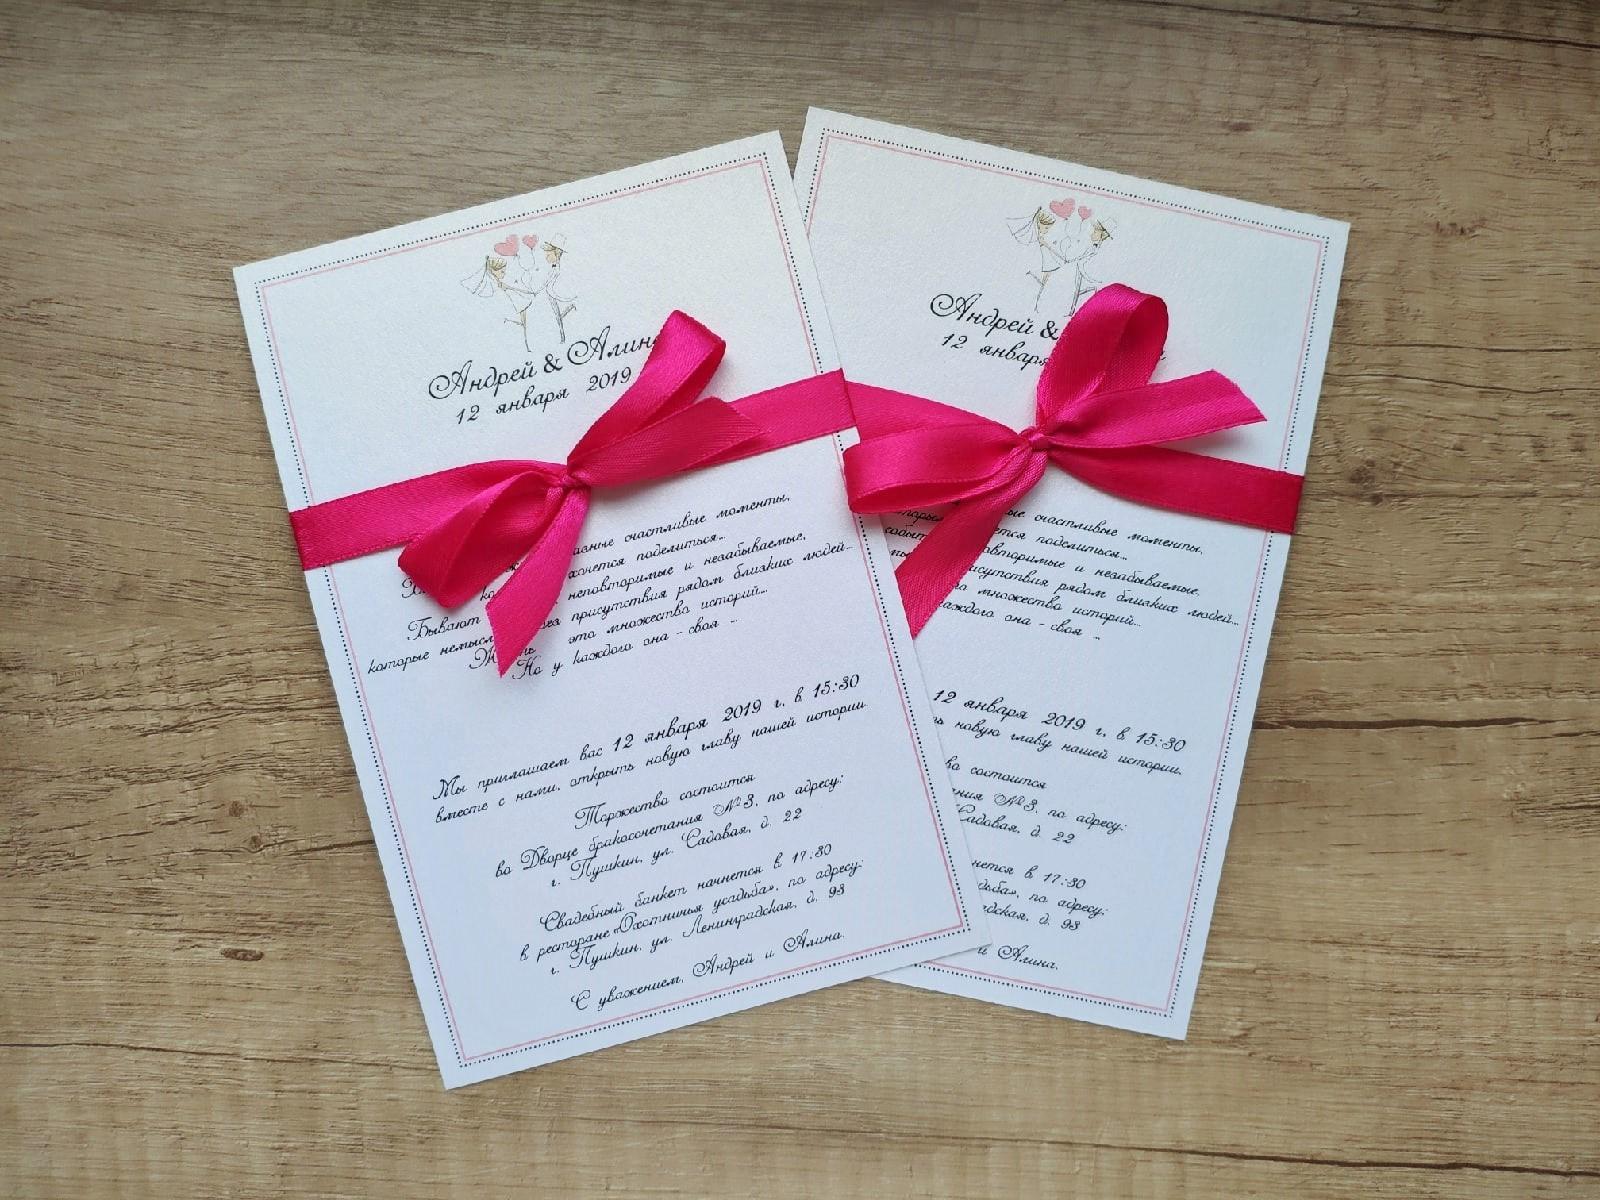 Андрей & Алин
12 января 2019
счастливые моменты,
хочется поделиться...
Бывают неповторимые и незабываемые,
которые присутствия рядом близких людей...
это множество историй...
Но у каждого она - своя ...
Мы приглашаем вас 12 января 2019 г. в 15:30
вместе с нами, открыть новую главу нашей истории.
Торжество состоится
во Дворце бракосочетания №3, по адресу:
г. Пушкин, ул. Садовая, д. 22
Свадебный банкет начнется в 17:30
в ресторане «Охотничья усадьба», по адресу:
г. Пушкин, ул. Ленинградская, д. 93
С уважением, Андрей и Алина.
Андрей &
12 января
счастливые моменты,
поделиться...
незабываемые,
присутствия рядом близких людей...
множество историй...
каждого она - своя ...
12 января 2019 г. в 15:30
новую главу нашей истории.
состоится
№3, по адресу:
Садовая, д. 22
в 17:30
по адресу:
д. 93
и Алина.